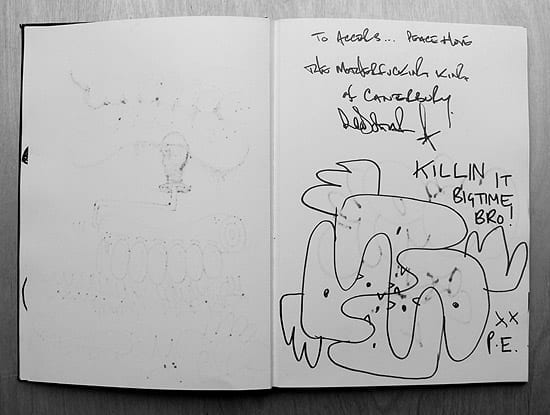 TO ACCESS... PEACE + LOVE
THE MOTHERFUCKING KING
of CANTERBURY.
KILLIN IT
BIGTIME
BRO!
XX
P.E.